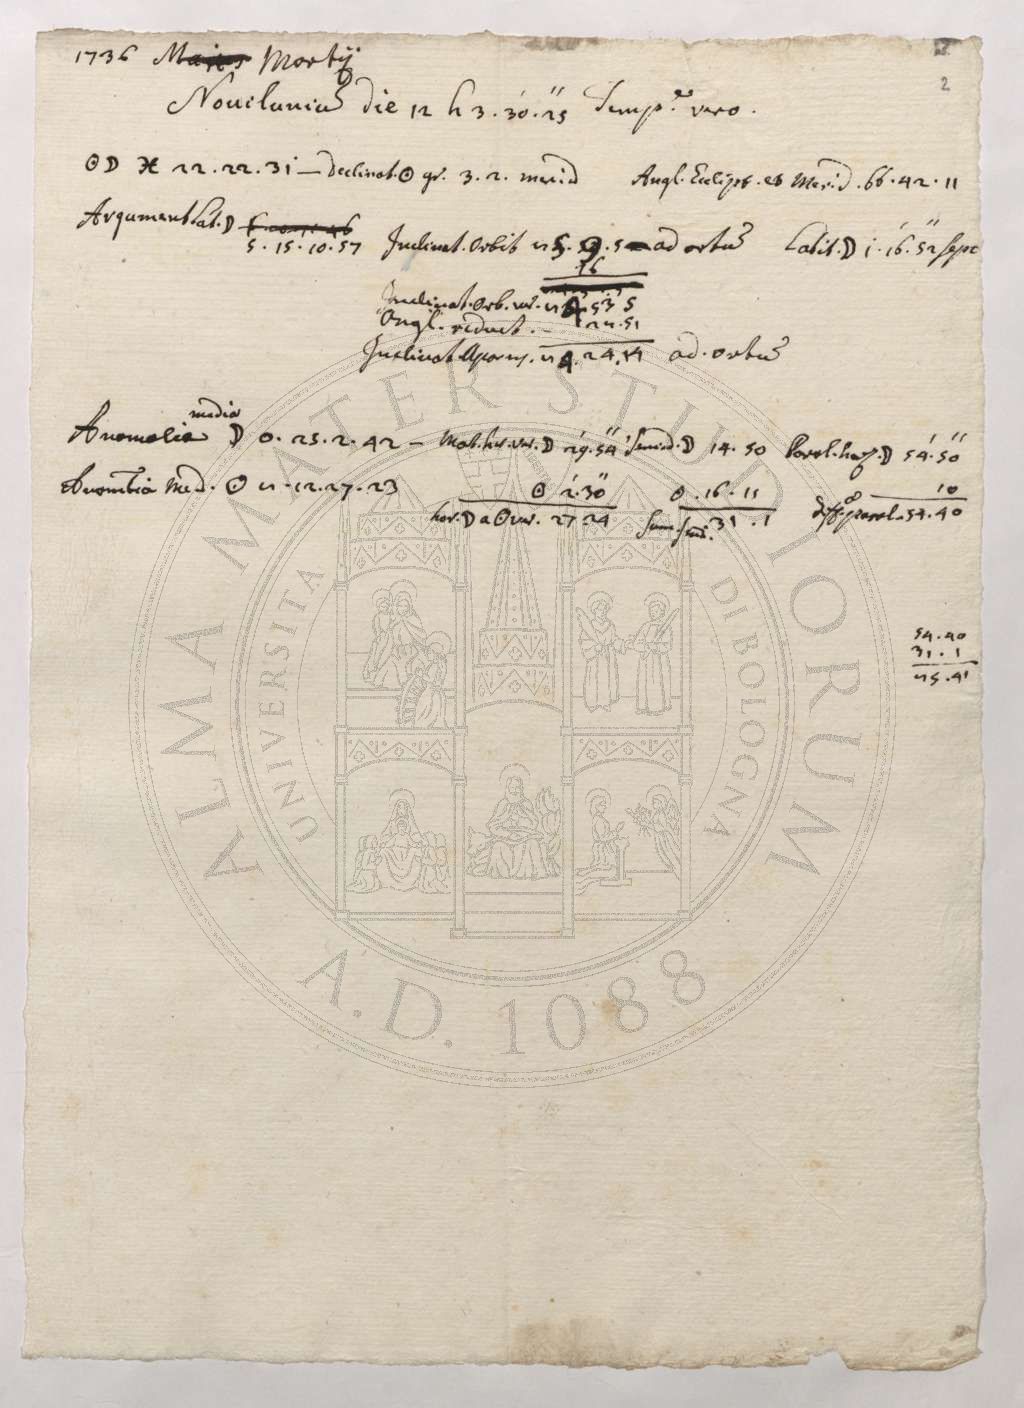 2
1736 Martij
Novilunium die 12 h 3. 30. 25 Temp.e vero.
☉ ☽ ♓ 22. 22. 31 — declinat. ☉ gr. 3. 2. merid Angl. Eclipt. et Merid. 66. 42. 11
Argument Lat. ☽
5. 15. 10. 57 Inclinat. orbit ad ortum Latit. ☽ 1. 16. 52 sept
16
Inclinat. Orb. ver.
Angl. reduct. — 24. 51
Inclinat. Appar. ad. ortum
media
Anomalia ☽ 0. 25. 2. 42 — Mot. hor. ver. ☽ 29. 54 Semid. ☽ 14. 50 Paral. hoz. ☽ 54. 50
Anomalia Med. ☉ 12. 27. 23 ☉ 2. 30 ☉. 16. 11 ☉ 10
hor. ☽ a ☉ ver. 27 24 Sum. semd. 31. 1 diff. paral. 54. 40
54. 40
31. 1
25. 41
ALMA MATER STUDIORUM
UNIVERSITÀ DI BOLOGNA
A.D. 1088